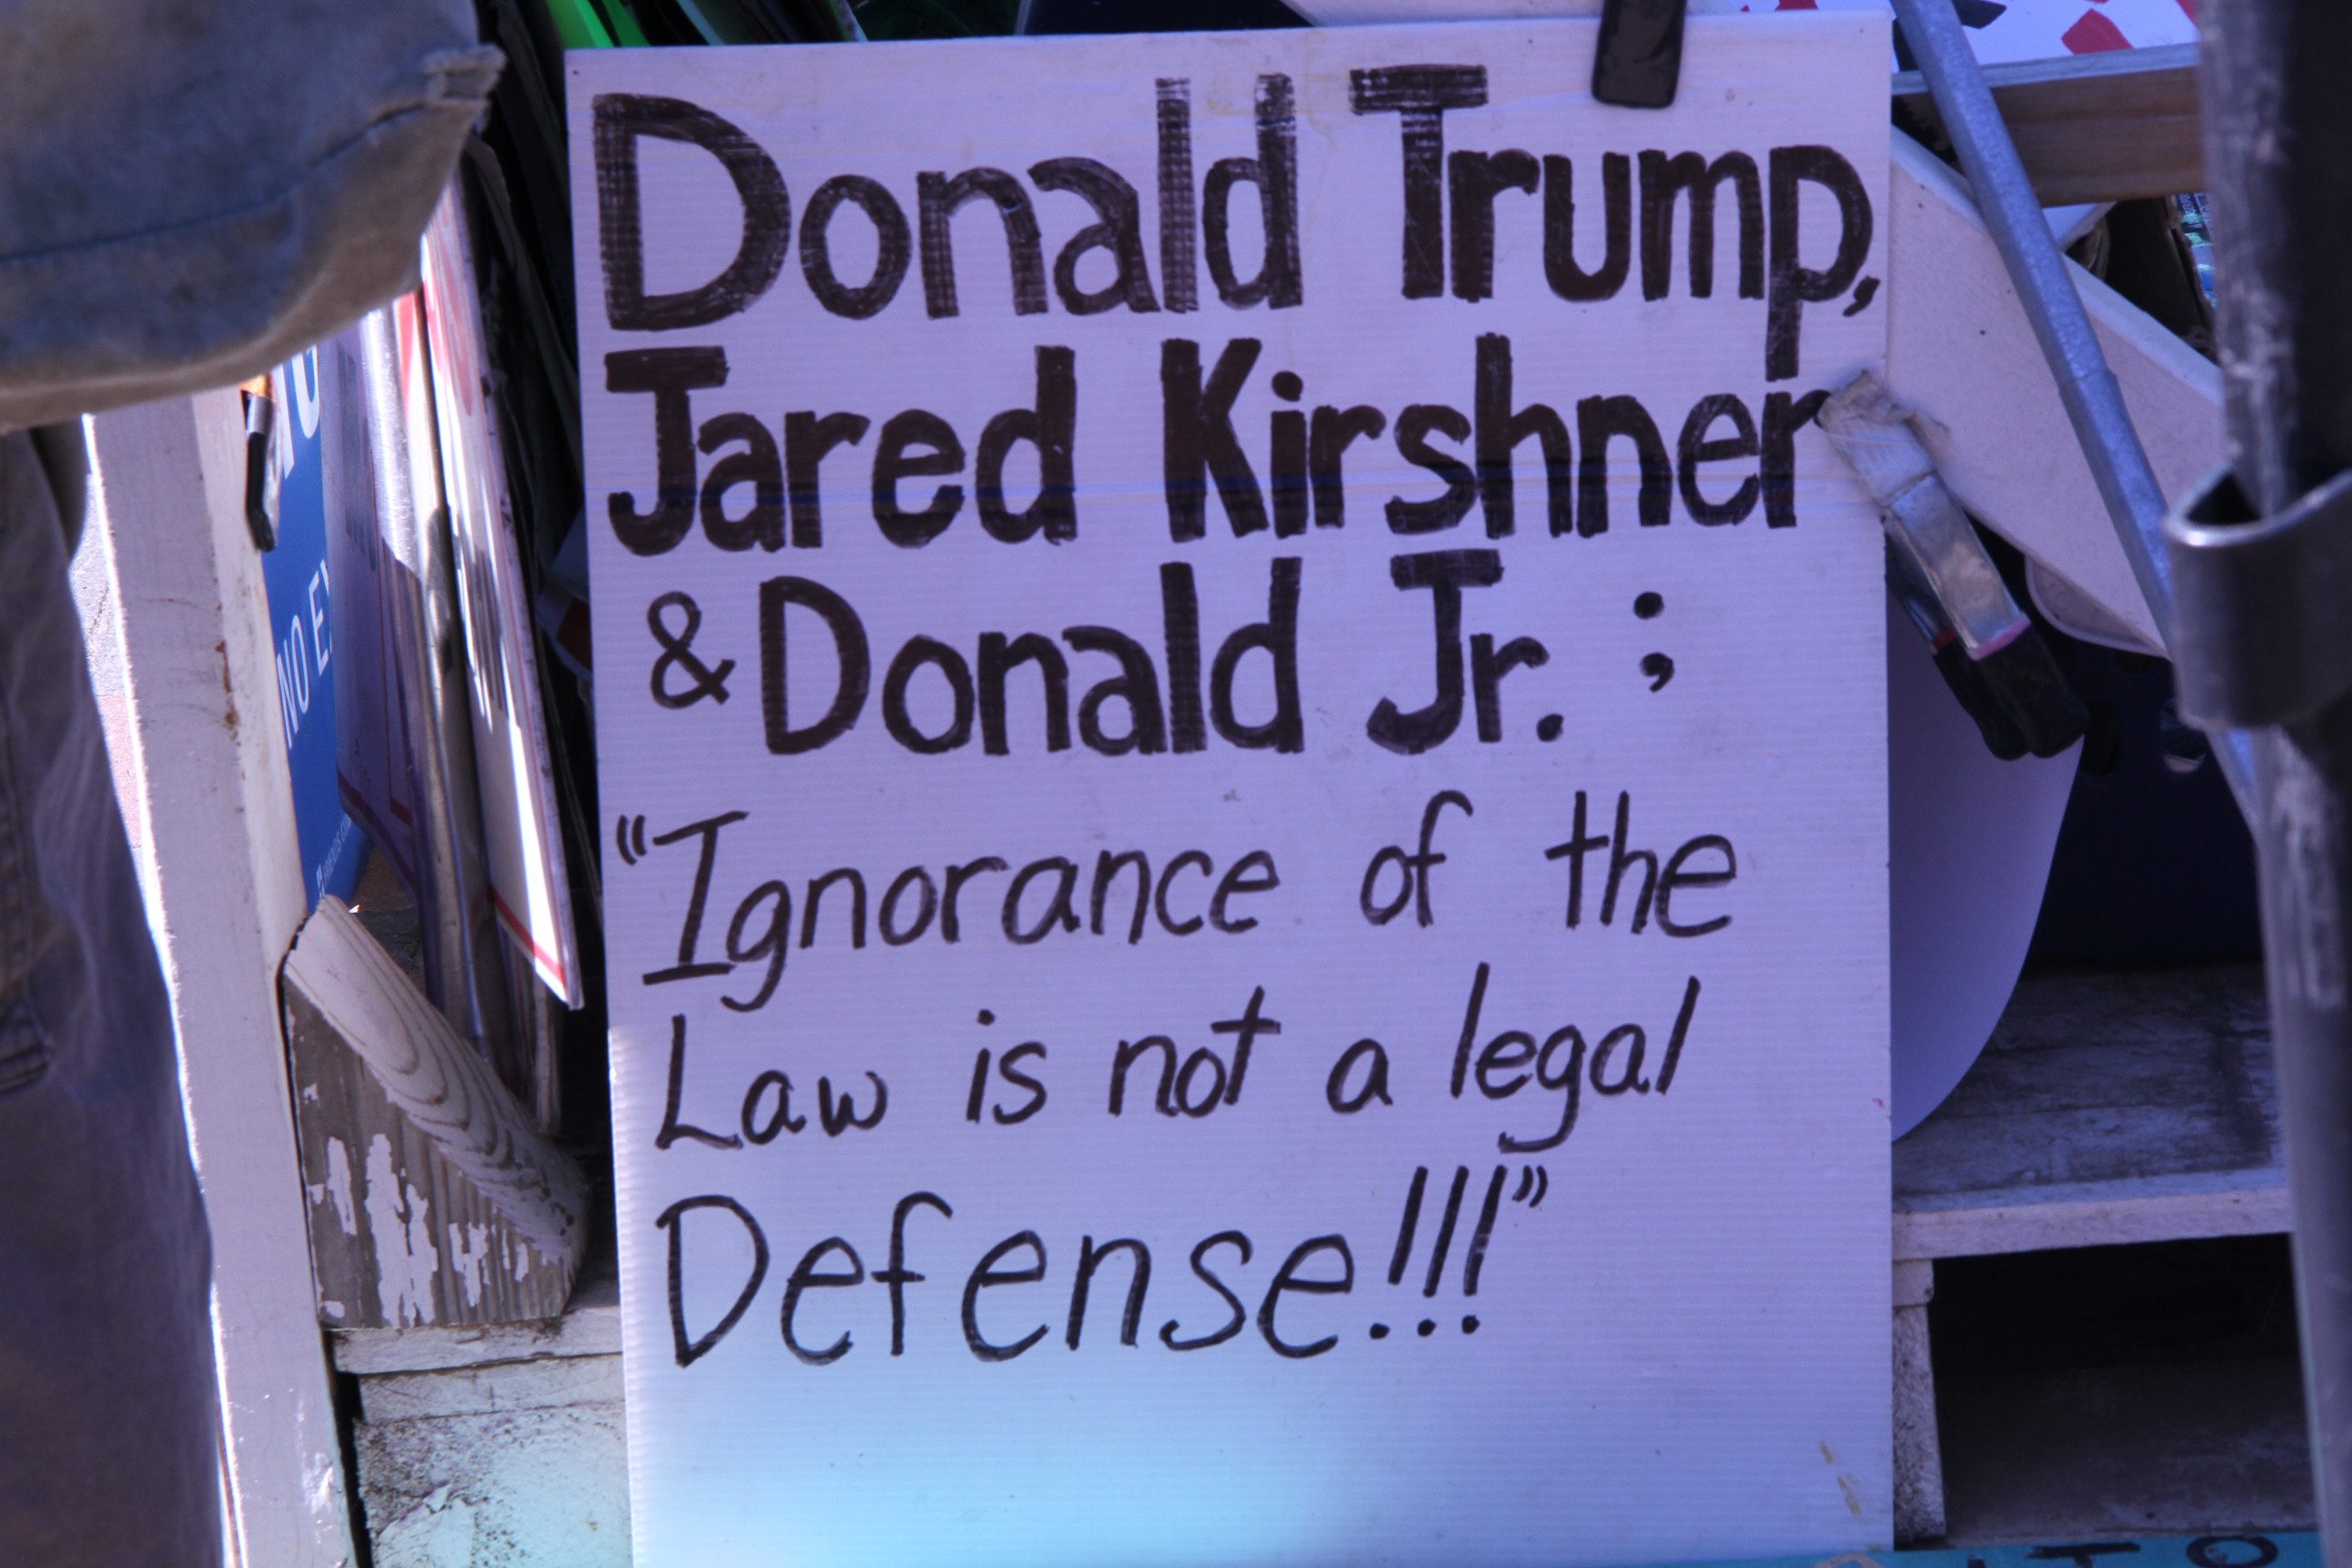 Donald Trump,
Jared Kirshner
& Donald Jr. ;
“Ignorance of the
Law is not a legal
Defense!!!”
NO